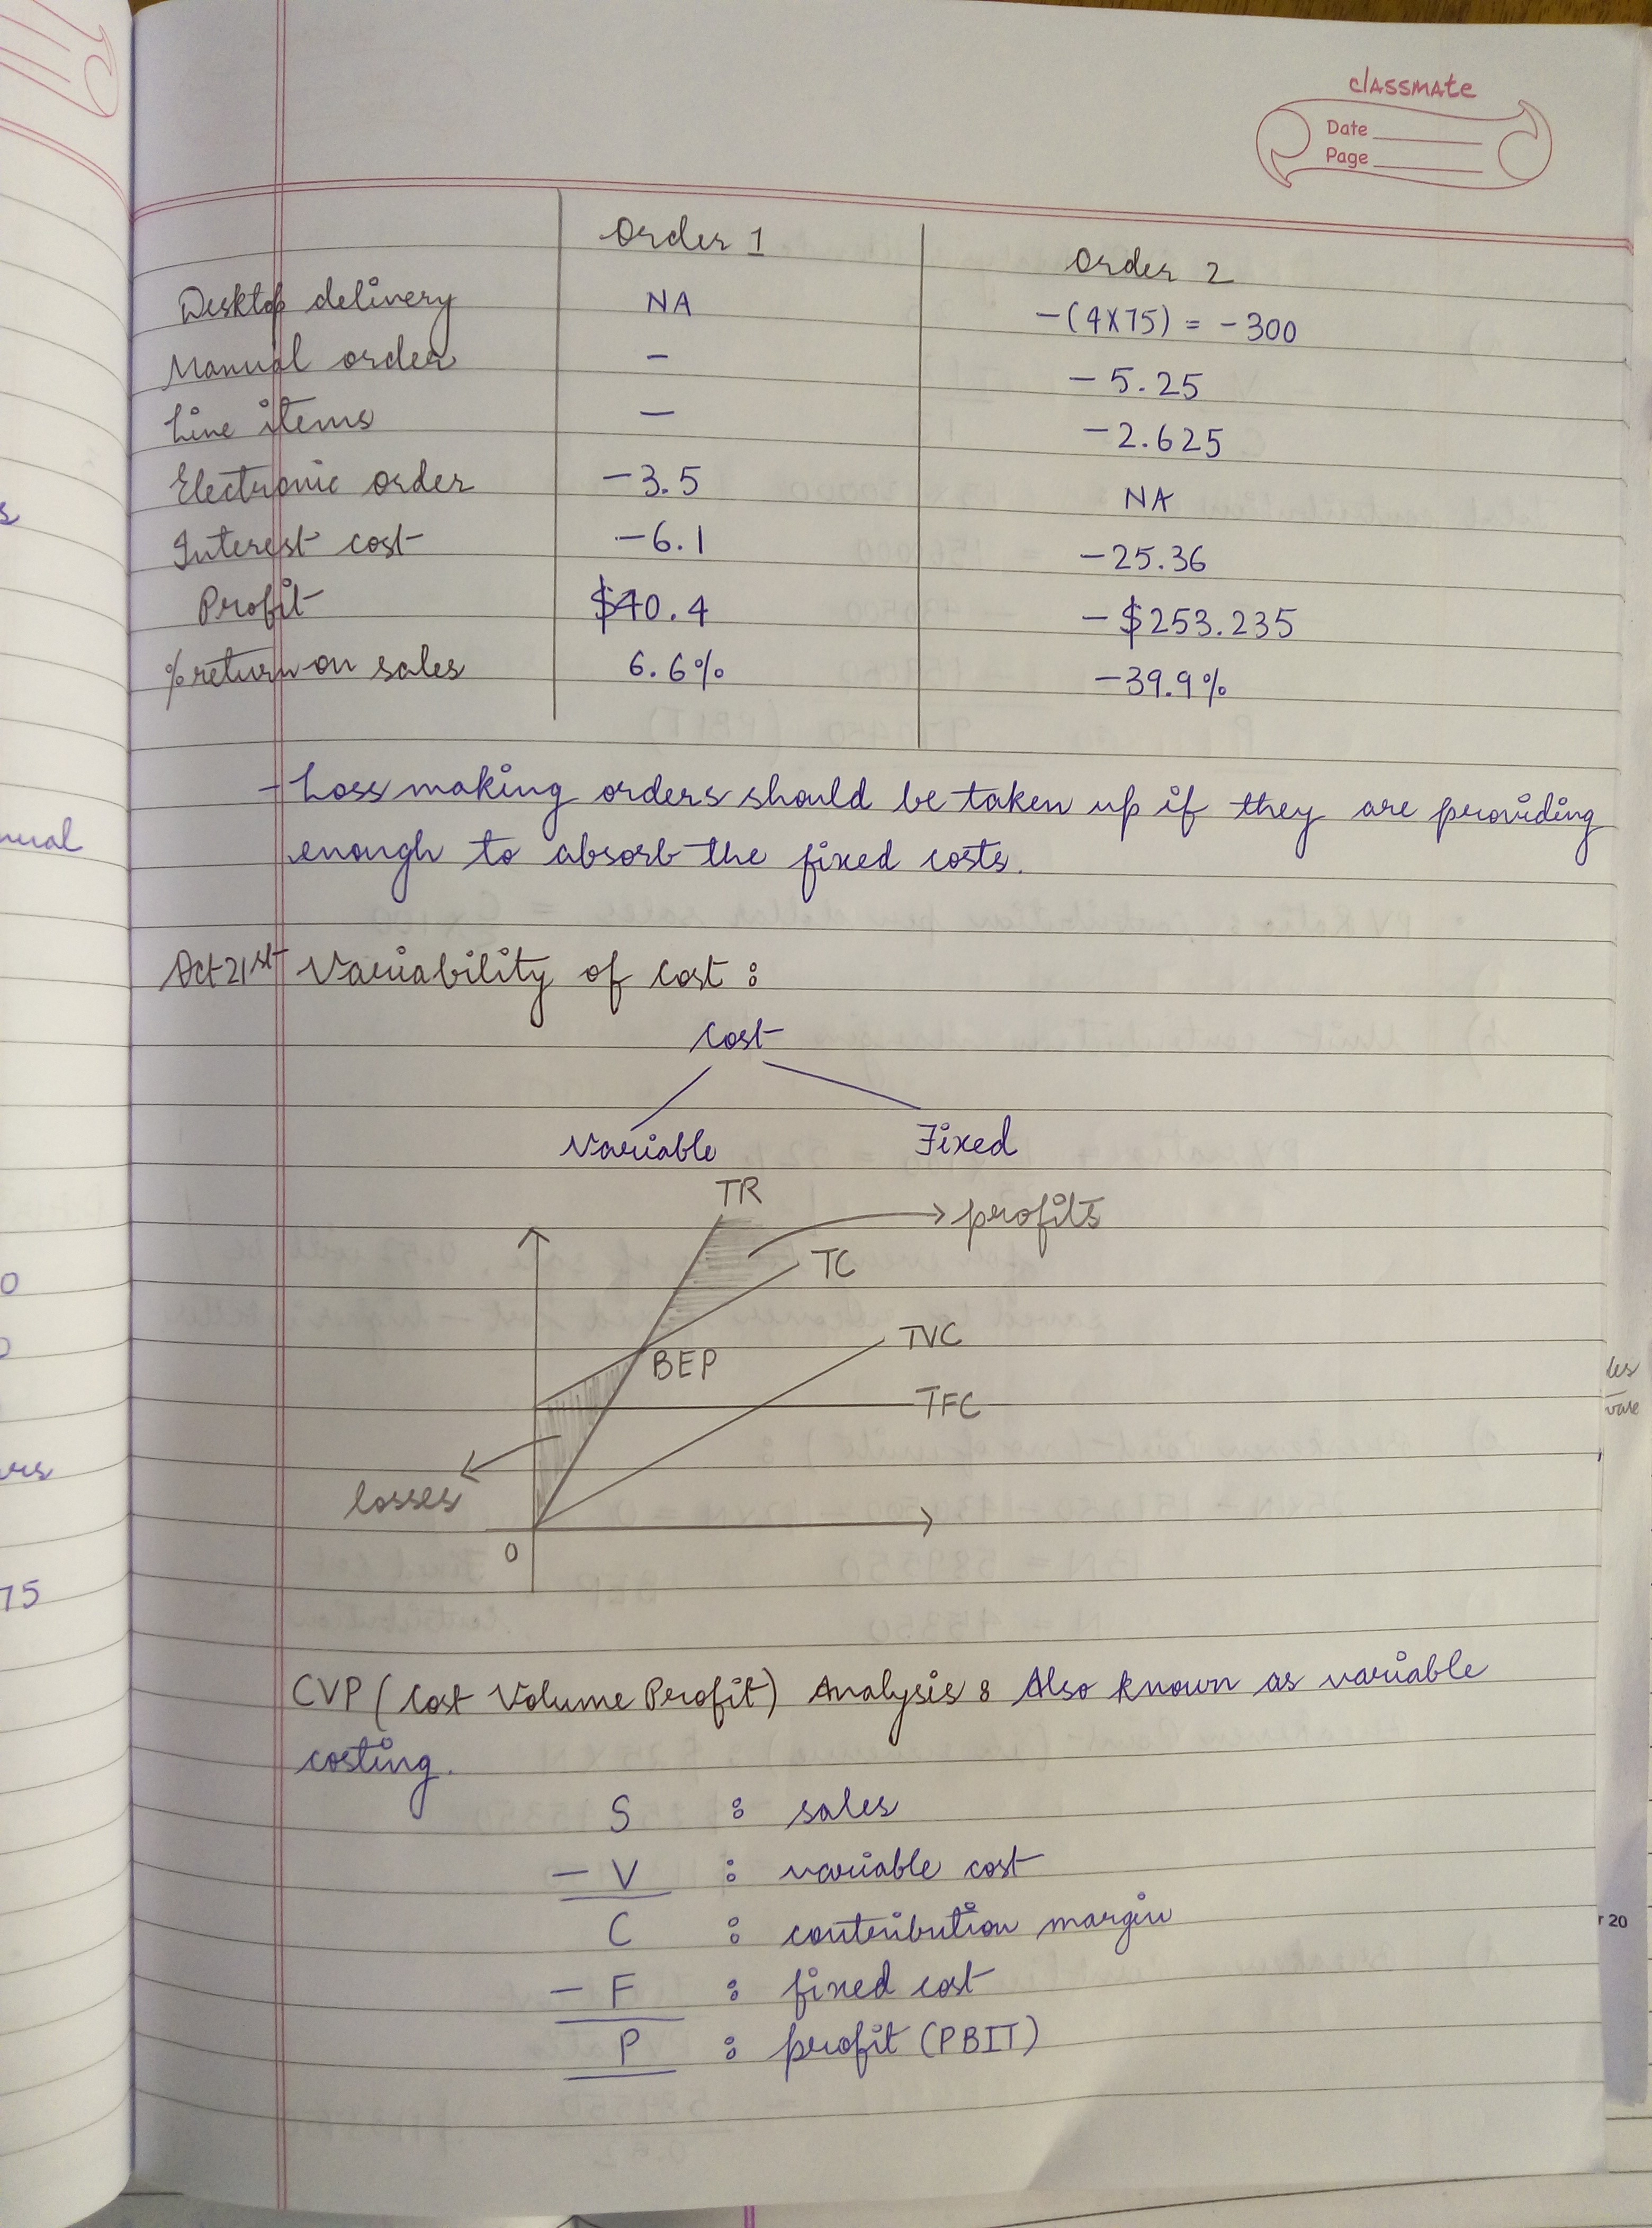 classmate
Date
Page
Order 1 Order 2
Desktop delivery NA -(4X75) = -300
Manual order - -5.25
Line items - -2.625
Electronic order -3.5 NA
Interest cost -6.1 -25.36
Profit $40.4 -$253.235
% return on sales 6.6% -39.9%
- Loss making orders should be taken up if they are providing
enough to absorb the fixed costs.
Oct 21st Variability of cost :
Cost
Variable Fixed
TR
profits
TC
TVC
BEP
TFC
losses
0
CVP (Cost Volume Profit) Analysis : Also known as variable
costing.
S : sales
- V : variable cost
C : contribution margin
- F : fixed cost
P : profit (PBIT)
nual
75
r 20